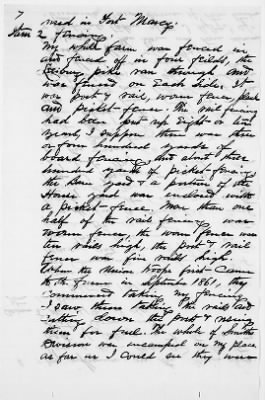 7
used in Fort Marcy.
Item 2 fencing.
My whole farm was fenced in
and fenced off in four fields, the
pike ran through and
was fenced on Each side. It
was post & rail, worm fence, plank
and picket-fence. The rail fencing
had been put up Eight or ten
years, I suppose there was three
or four hundred yards of
board fencing, and about three
hundred yards of picket-fencing,
the barn yard & a portion of the
House yard was enclosed with
a picket-fence. More than one
half of the rail fencing was
worm fence, the worm fence was
ten rails high, the post & rail
fence was five rails high.
When the Union troops first-came
to the farm in September 1861, they
commenced taking my fencing
I saw them taking the rails and
cutting down the posts & using
them for fuel. The whole of Smiths
Division was encamped on my place
as far as I could see they were